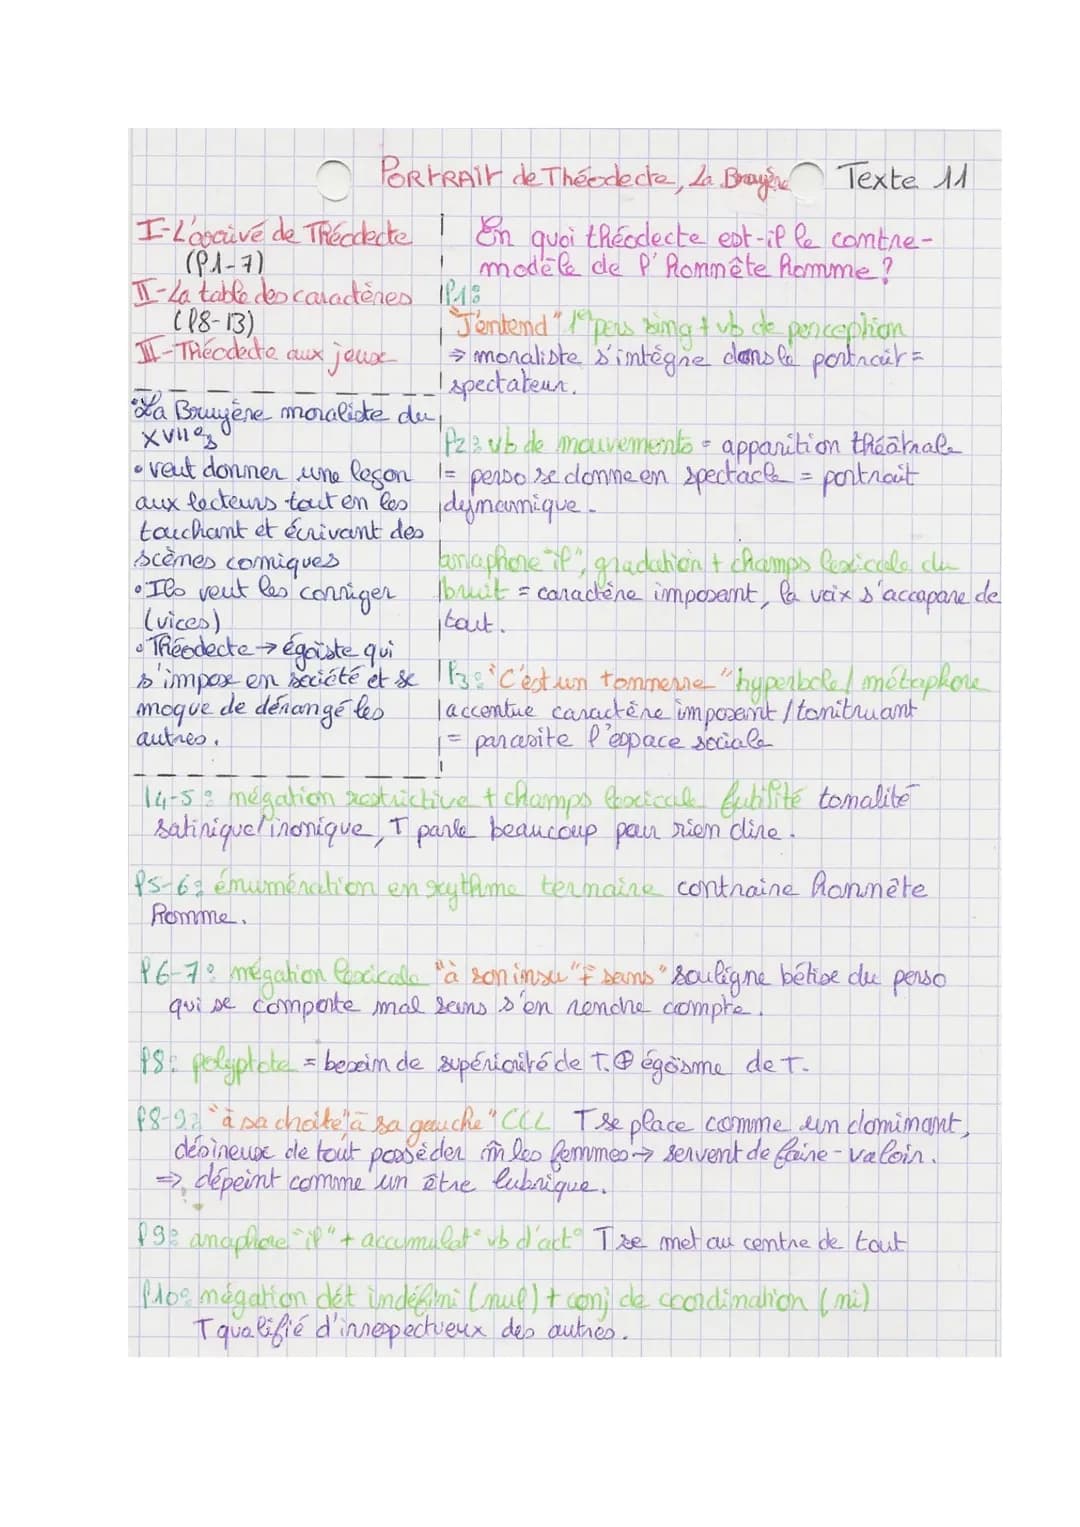 PORTRAIT de Théodecte, La Bruyère Texte 11
I-L'arrivé de Théodecte
(l1-7)
II-La table des caractères
(l8-13)
III-Théodecte aux jeux
•La Bruyère moraliste du
XVIIe s
• veut donner une leçon
aux lecteurs tout en les
touchant et écrivant des
scèmes comiques
• Ils veut les corriger
(vices)
• Théodecte → égoïste qui
s'impose en société et se
moque de dérangé les
autres.
En quoi théodecte est-il le contre-
modèle de l'Honnête Homme ?
l1:
"J'entend" 1e pers sing + vb de perception
⇒ moraliste s'intègre dans le portrait =
spectateur.
l2: vb de mouvements = apparition théâtrale
= perso se donne en spectacle = portrait
dynamique.
anaphore "il", gradation + champs lexicale du
bruit = caractère imposant, la voix s'accapare de
tout.
l3: "C'est un tonnerre" hyperbole / métaphore
accentue caractère imposant / tonitruant
= parasite l'espace sociale
l4-5: négation restrictive + champs lexicale futilité tonalité
satirique/ironique, T parle beaucoup pour rien dire.
l5-6: énumération en rythme ternaire contraire honnête
homme.
l6-7: négation lexicale "à son insu" ≠ sans" souligne bétise du perso
qui se comporte mal sans s'en rendre compte.
l8: polyptote = besoin de supériorité de T. ⊕ égoïsme de T.
l8-9: "à sa droite" à sa gauche" CCL T se place comme un dominant,
désireux de tout posséder m̂ les femmes → servent de faire-valoir.
⇒ dépeint comme un être lubrique.
l9: anaphore "il" + accumulat° vb d'act° T se met au centre de tout
l10: négation dét indéfini (nul) + conj de coordination (ni)
T qualifié d'irrespectueux des autres.